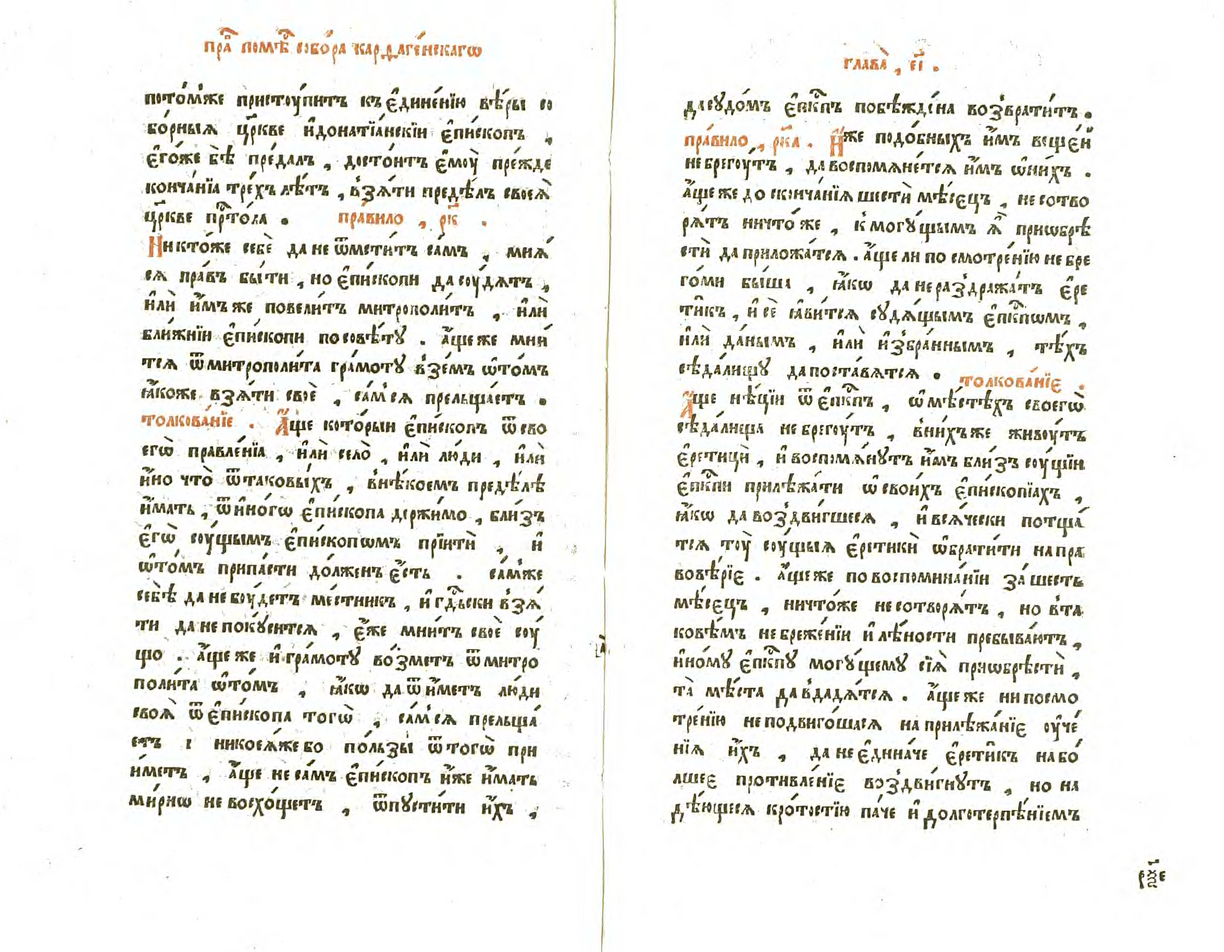 пра҇ помѣ҇ собо́ра карѳаге́нскагѡ
пото́мже пристоу́питъ къ є҆дине́нїю вѣ́ры со
бо́рныѧ цр҃кве и҆донатїа́нскїи є҆пи́скопъ ,
є҆го́же бѣ̀ преда́лъ , досто́итъ є҆моу̀ пре́жде
конча́нїа тре́хъ лѣ́тъ , взѧ́ти предѣ́лъ своеѧ̀
цр҃кве пр҇то́ла . пра́вило , рк҃ .
Никто́же себѐ да не ѿмести́тъ са́мъ , мнѧ́
сѧ пра́въ бы́ти , но є҆пи́скопи да соу́дѧтъ ,
и҆лѝ и҆́мъ же повели́тъ митрополи́тъ , и҆лѝ
бли́жнїи є҆пи́скопи по совѣ́ту . а҆́ще же мни́
тсѧ ѿ митрополи́та гра́моту взе́мъ ѡ҆то́мъ
ꙗ҆́коже взѧ́ти своѐ , са́мсѧ прельща́етъ .
толкова́нїе . А҆́ще кото́рыи є҆пи́скопъ ѿ сво
егѡ̀ правле́нїа , и҆лѝ село̀ , и҆лѝ лю́ди , и҆лѝ
и҆́но что̀ ѿ таковы́хъ , в нѣ́коемъ предѣ́лѣ
и҆́мать , ѿ и҆но́гѡ є҆пи́скопа держи́мо , бли́зъ
є҆гѡ̀ соу́щымъ є҆пи́скопѡмъ прїитѝ , и҆
ѡ҆то́мъ припа́сти до́лженъ є҆́сть . са́мже
себѣ̀ да не боу́детъ ме́стникъ , и҆ гд҇ьски взѧ́
ти да не поку́ситсѧ , є҆́же мни́тъ своѐ соу́
що . а҆́ще же и҆ гра́моту во́зметъ ѿ митро
поли́та ѡ҆то́мъ , ꙗ҆́кѡ да ѿи́метъ лю́ди
своѧ̀ ѿ є҆пи́скопа тогѡ̀ , са́мсѧ прельща́
етъ : никоеѧ́же бо по́льзы ѿ тогѡ̀ при
и́метъ , а҆́ще не са́мъ є҆пи́скопъ и҆́же и҆́мать
ми́рнѡ не восхо́щетъ , ѿпусти́ти и҆́хъ ,
глава̀ , є҃і .
да судо́мъ є҆пк҇пъ побѣжде́на возврати́тъ .
пра́вило , рк҃а . И҆̀же подо́бныхъ и҆́мъ веще́и
не брегоу́тъ , да воспомѧне́тсѧ и҆́мъ ѡ҆ни́хъ .
а҆́ще же до сконча́нїѧ шестѝ мѣ́сѧцъ , не сотво
рѧ́тъ ничто́же , к могу́щымъ ꙗ҆̀ приѡбрѣ́
сти да приложа́тсѧ . а҆́ще ли по смотре́нїю не бре
го́ми бы́ша , ꙗ҆́кѡ да не раздража́тъ є҆ре
ти́къ , и҆ сѐ ꙗ҆ви́тсѧ судѧ́щымъ є҆пк҇пѡмъ ,
и҆лѝ да́нымъ , и҆лѝ и҆збра́ннымъ , тѣ́хъ
сѣда́лищу да поста́вѧтсѧ . толкова́нїе .
А҆́ще нѣ́цїи ѿ є҆пк҇пъ , ѡ҆ мѣ́стѣхъ своегѡ̀
сѣда́лища не брегоу́тъ , в ни́хъже живоу́тъ
є҆ретицы̀ , и҆ воспомѧну́тъ и҆́мъ бли́зъ соу́щїи
є҆пк҇пи прилѣжа́ти ѡ҆ свои́хъ є҆писко́пїахъ ,
ꙗ҆́кѡ да воздви́гшесѧ , и҆ всѧ́чески потща́
тсѧ тоу̀ соу́щыѧ є҆ретикѝ ѡ҆брати́ти на пра
вовѣ́рїе . а҆́ще же по воспомина́нїи за́ шесть
мѣ́сѧцъ , ничто́же не сотворѧ́тъ , но в та
ковѣ́мъ небреже́нїи и҆ лѣ́ности пребыва́ютъ ,
и҆но́му є҆пк҇пу могу́щему сїѧ̀ приѡбрѣстѝ ,
та̀ мѣ́ста да вдадѧ́тсѧ . а҆́ще же ни посмо
тре́нїю не подвиго́шасѧ на прилѣжа́нїе оу҆че́
нїѧ и҆́хъ , да не є҆дина́че є҆рети́къ на бо́
лшее противле́нїе воздви́гнутъ , но на
дѣ́ющесѧ кро́тостїю па́че и҆ долготерпѣ́нїемъ